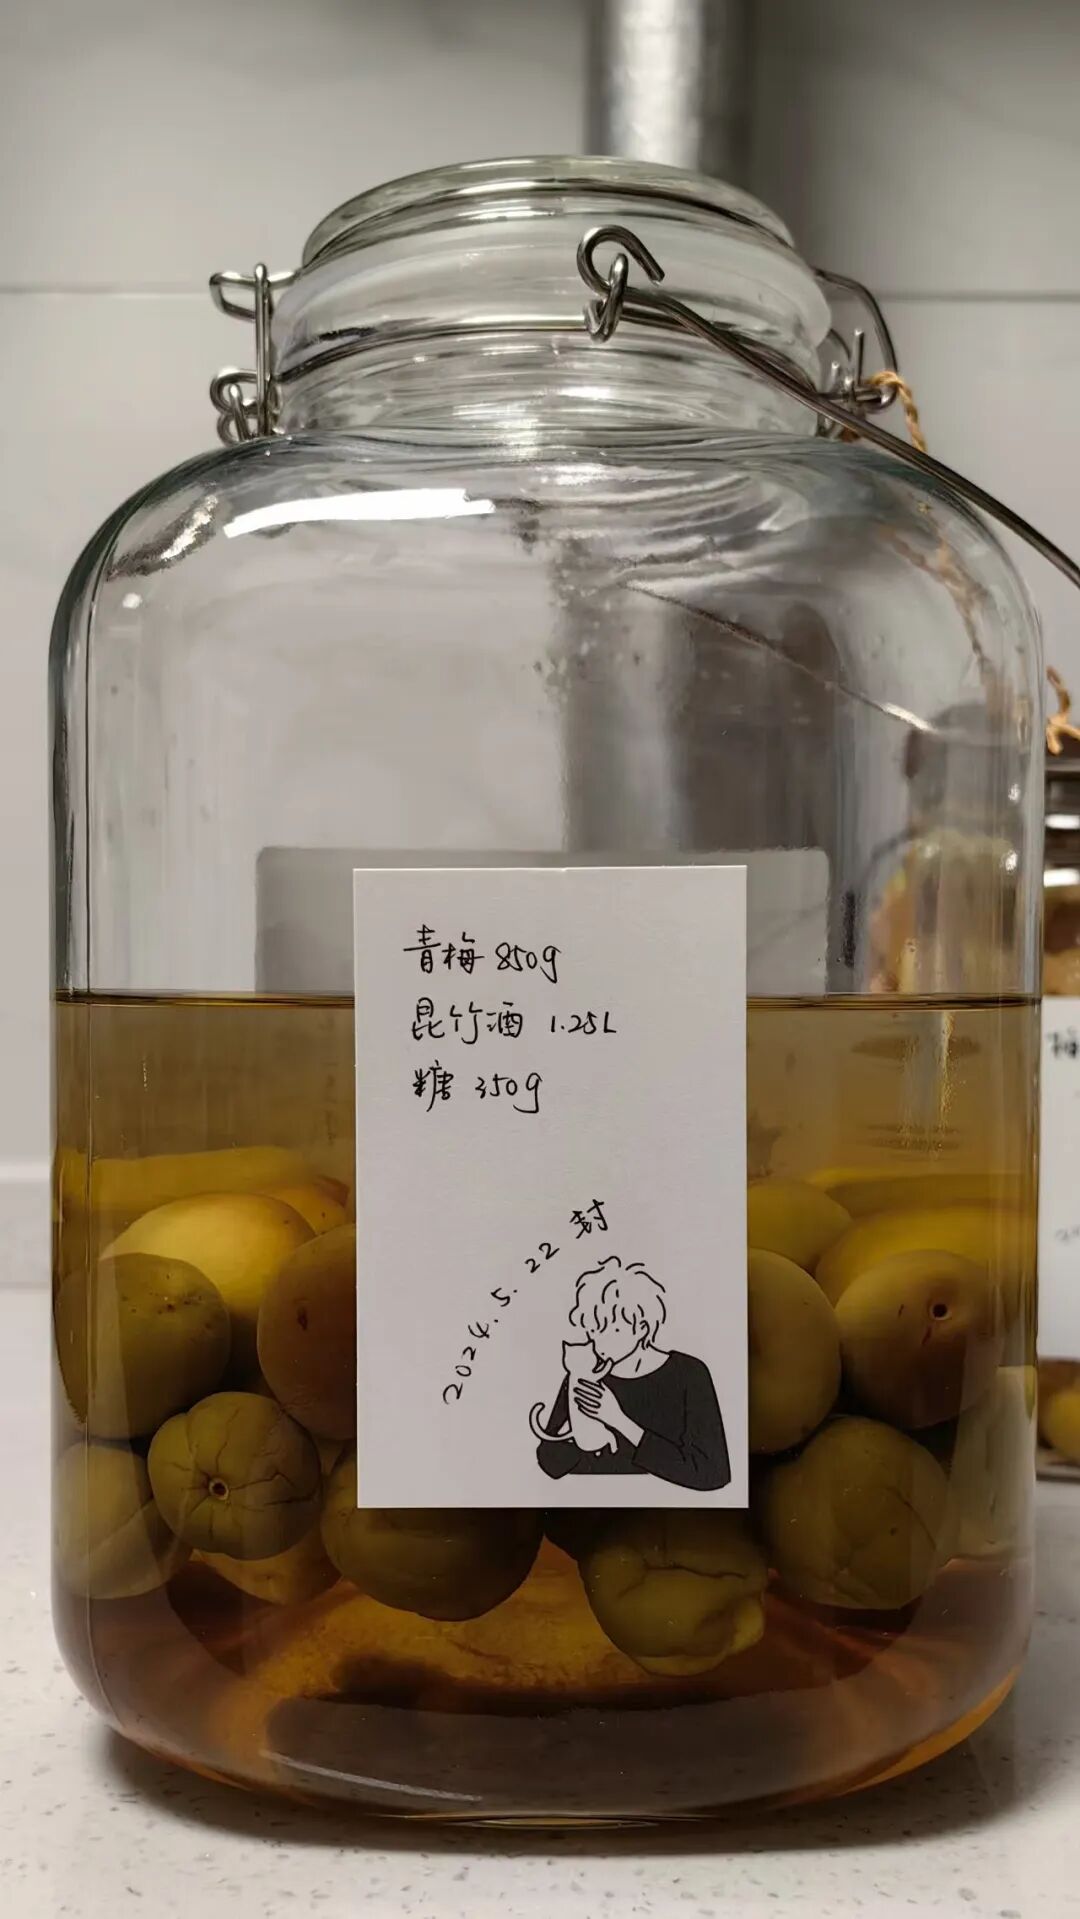 青梅 850g
昆竹酒 1.25L
糖 350g
2024.5.22 封